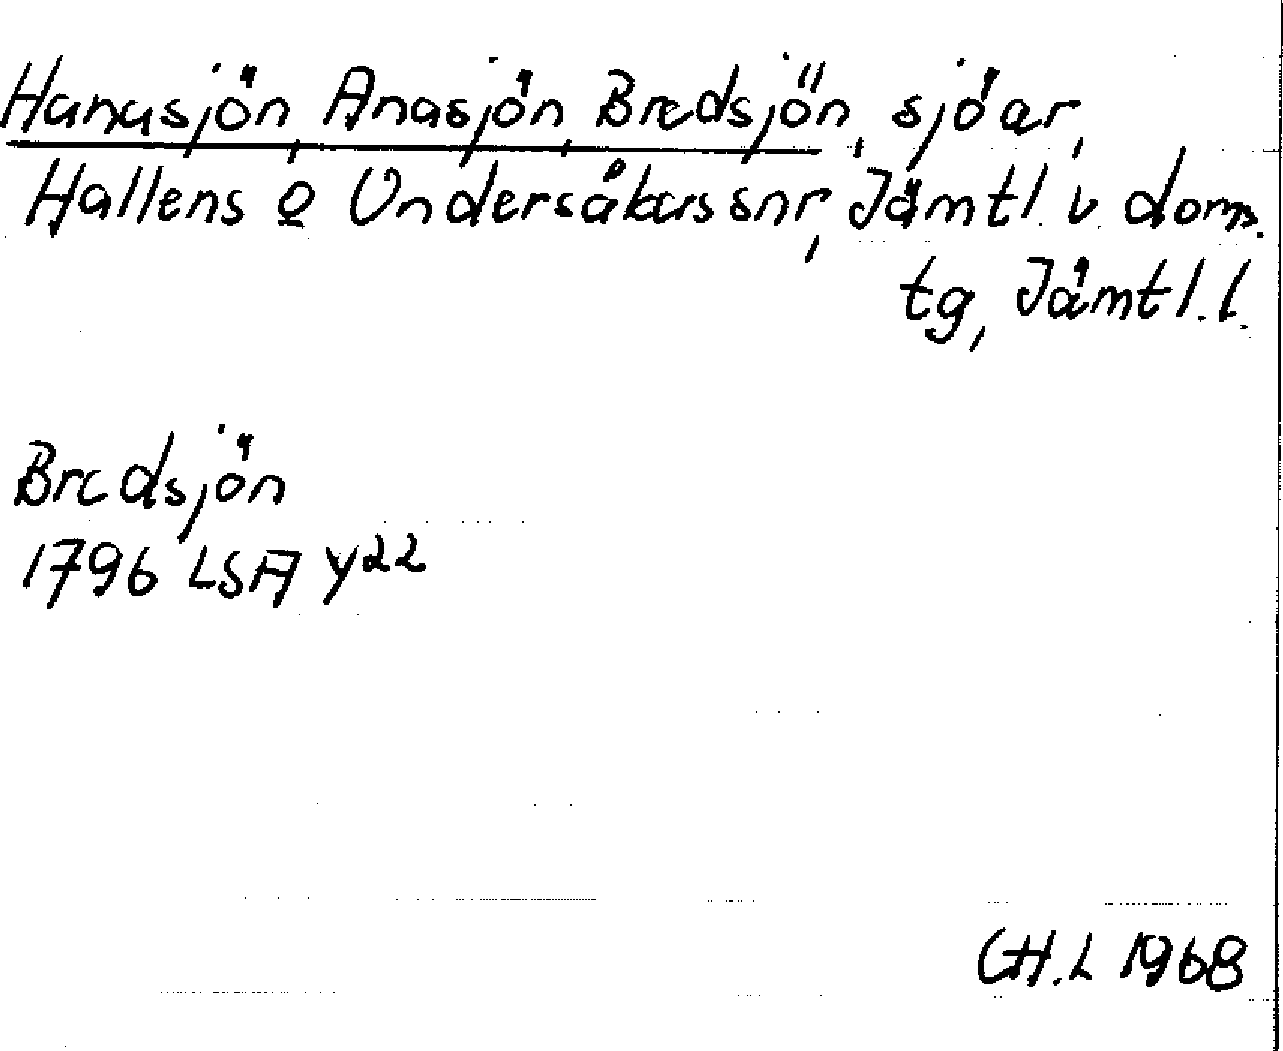 Hanasjön, Anasjön, Bredsjön, sjöar,
Hallens o Undersåkers snr, Jämtl. v. doms.
tg, Jämtl. l.
Bredsjön
1796 LSA Y22
G.H.L 1968